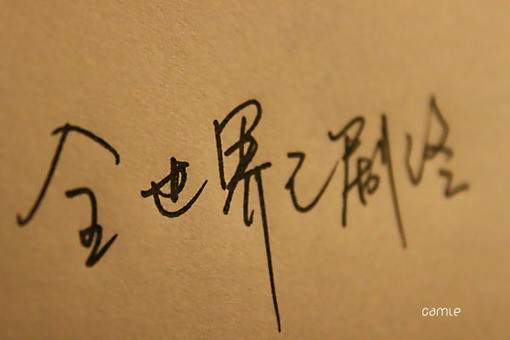 全世界之剧终
camle